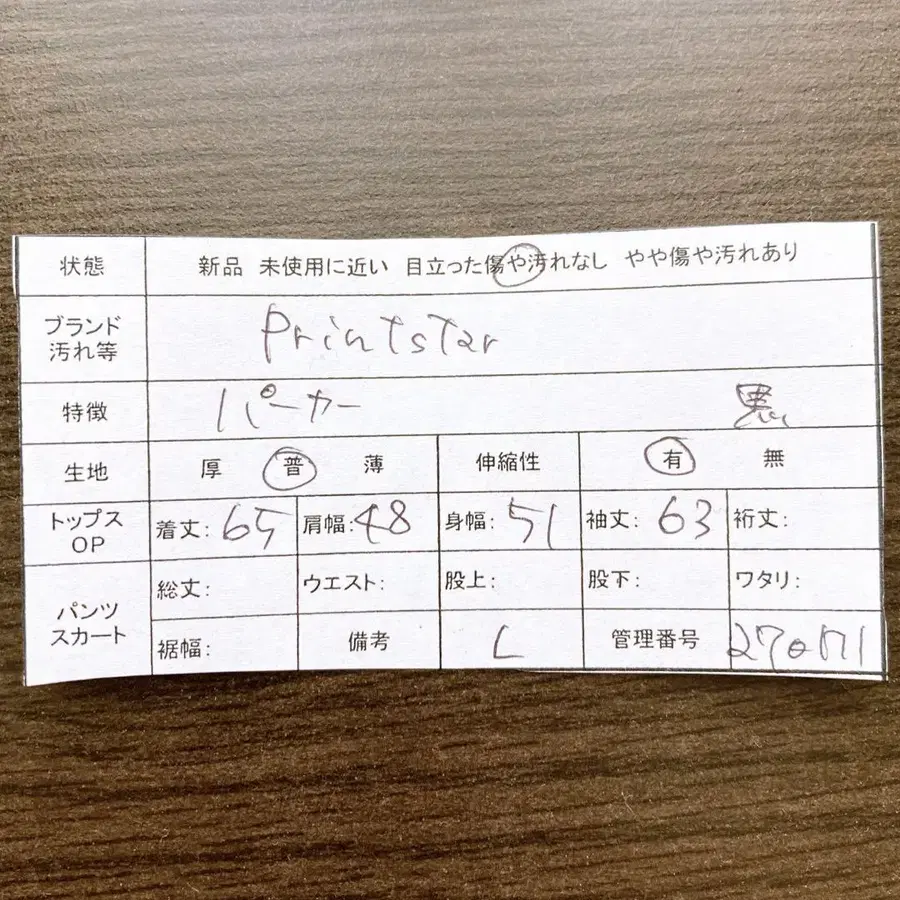 状態 新品 未使用に近い 目立った傷や汚れなし やや傷や汚れあり
ブランド
汚れ等
Printstar
特徴 パーカー 黒
生地 厚 普 薄 伸縮性 有 無
トップス
OP
着丈: 65 肩幅: 48 身幅: 51 袖丈: 63 裄丈:
パンツ
スカート
総丈: ウエスト: 股上: 股下: ワタリ:
裾幅: 備考 L 管理番号